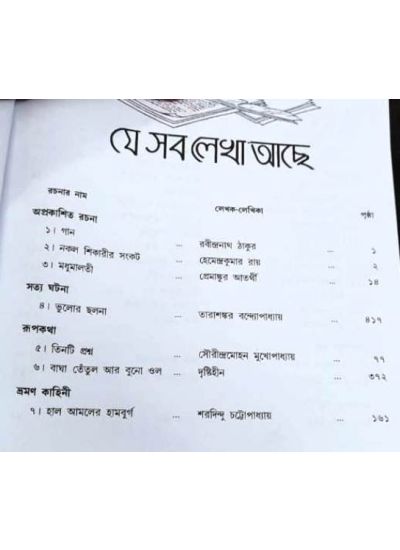 যে সব লেখা আছে
রচনার নাম লেখক-লেখিকা পৃষ্ঠা
অপ্রকাশিত রচনা
১। গান ... রবীন্দ্রনাথ ঠাকুর ... ১
২। নকল শিকারীর সংকট ... হেমেন্দ্রকুমার রায় ... ২
৩। মধুমালতী ... প্রেমাঙ্কুর আতর্থী ... ১৪
সত্য ঘটনা
৪। ভুলোর ছলনা ... তারাশঙ্কর বন্দ্যোপাধ্যায় ... ৪১৭
রূপকথা
৫। তিনটি প্রশ্ন ... সৌরীন্দ্রমোহন মুখোপাধ্যায় ... ৭৭
৬। বাঘা তেঁতুল আর বুনো ওল ... দৃষ্টিহীন ... ৩৭২
ভ্রমণ কাহিনী
৭। হাল আমলের হামবুর্গ ... শরদিন্দু চট্টোপাধ্যায় ... ১৬১